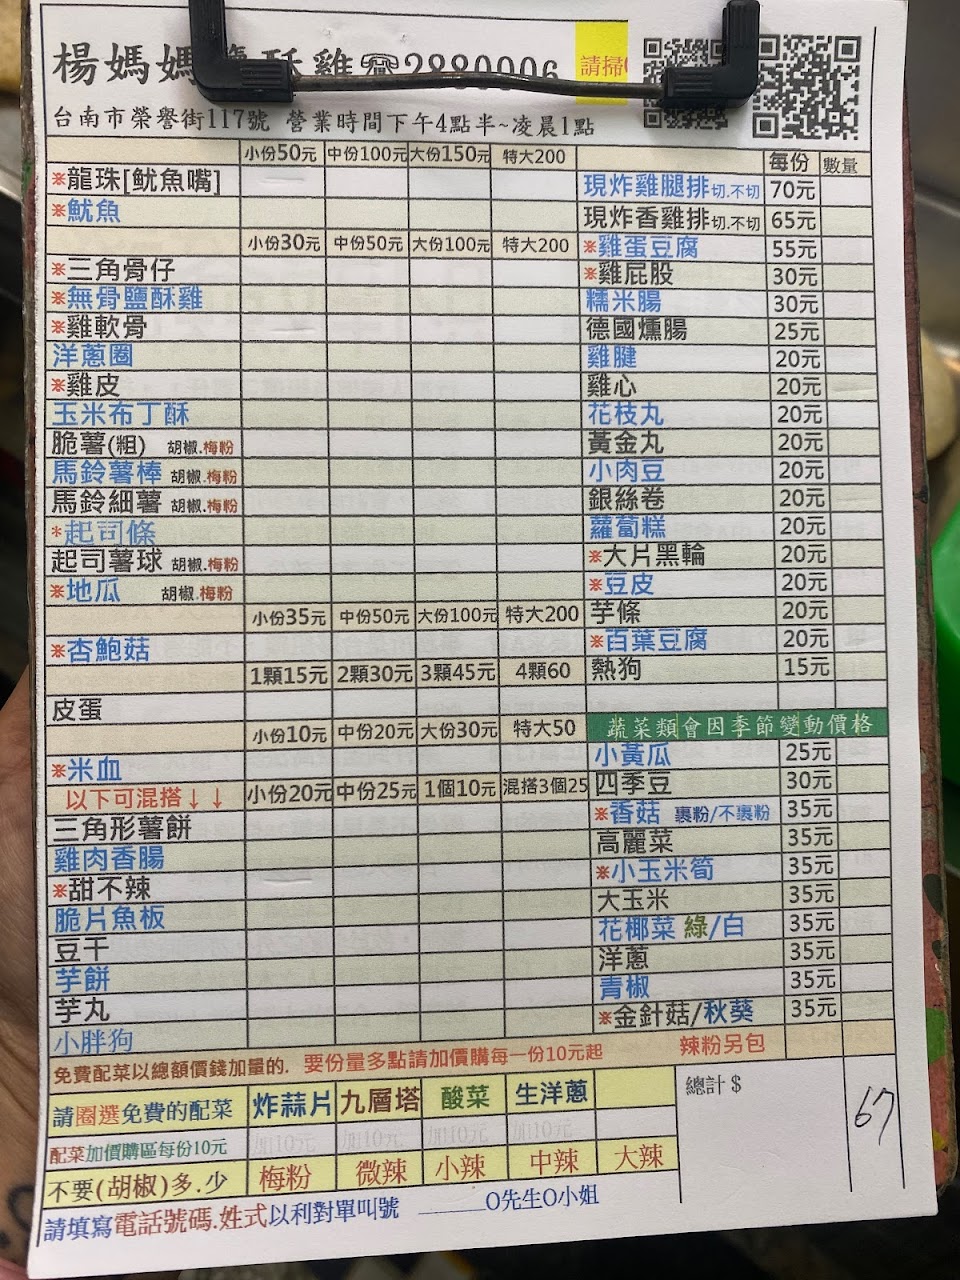 楊媽媽鹽酥雞☎2880006 請掃
台南市榮譽街117號 營業時間下午4點半~凌晨1點
小份50元 中份100元 大份150元 特大200 每份 數量
※龍珠[魷魚嘴] 現炸雞腿排切.不切 70元
※魷魚 現炸香雞排切.不切 65元
小份30元 中份50元 大份100元 特大200 ※雞蛋豆腐 55元
※三角骨仔 ※雞屁股 30元
※無骨鹽酥雞 糯米腸 30元
※雞軟骨 德國燻腸 25元
洋蔥圈 雞腱 20元
※雞皮 雞心 20元
玉米布丁酥 花枝丸 20元
脆薯(粗) 胡椒.梅粉 黃金丸 20元
馬鈴薯棒 胡椒.梅粉 小肉豆 20元
馬鈴細薯 胡椒.梅粉 銀絲卷 20元
*起司條 蘿蔔糕 20元
起司薯球 胡椒.梅粉 ※大片黑輪 20元
※地瓜 胡椒.梅粉 ※豆皮 20元
小份35元 中份50元 大份100元 特大200 芋條 20元
※杏鮑菇 ※百葉豆腐 20元
1顆15元 2顆30元 3顆45元 4顆60 熱狗 15元
皮蛋
小份10元 中份20元 大份30元 特大50 蔬菜類會因季節變動價格
※米血 小黃瓜 25元
以下可混搭↓↓ 小份20元 中份25元 1個10元 混搭3個25 四季豆 30元
三角形薯餅 ※香菇 裹粉/不裹粉 35元
雞肉香腸 高麗菜 35元
※甜不辣 ※小玉米筍 35元
脆片魚板 大玉米 35元
豆干 花椰菜 綠/白 35元
芋餅 洋蔥 35元
芋丸 青椒 35元
小胖狗 ※金針菇/秋葵 35元
免費配菜以總額價錢加量的. 要份量多點請加價購每一份10元起 辣粉另包
請圈選免費的配菜 炸蒜片 九層塔 酸菜 生洋蔥 總計 $
配菜加價購區每份10元 加10元 加10元 加10元 加10元 67
不要(胡椒)多.少 梅粉 微辣 小辣 中辣 大辣
請填寫電話號碼.姓式以利對單叫號 ______O先生O小姐